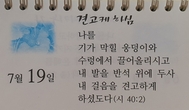 견고케 하심
나를
기가 막힐 웅덩이와
수렁에서 끌어올리시고
내 발을 반석 위에 두사
내 걸음을 견고하게
하셨도다(시 40:2)
7월 19일